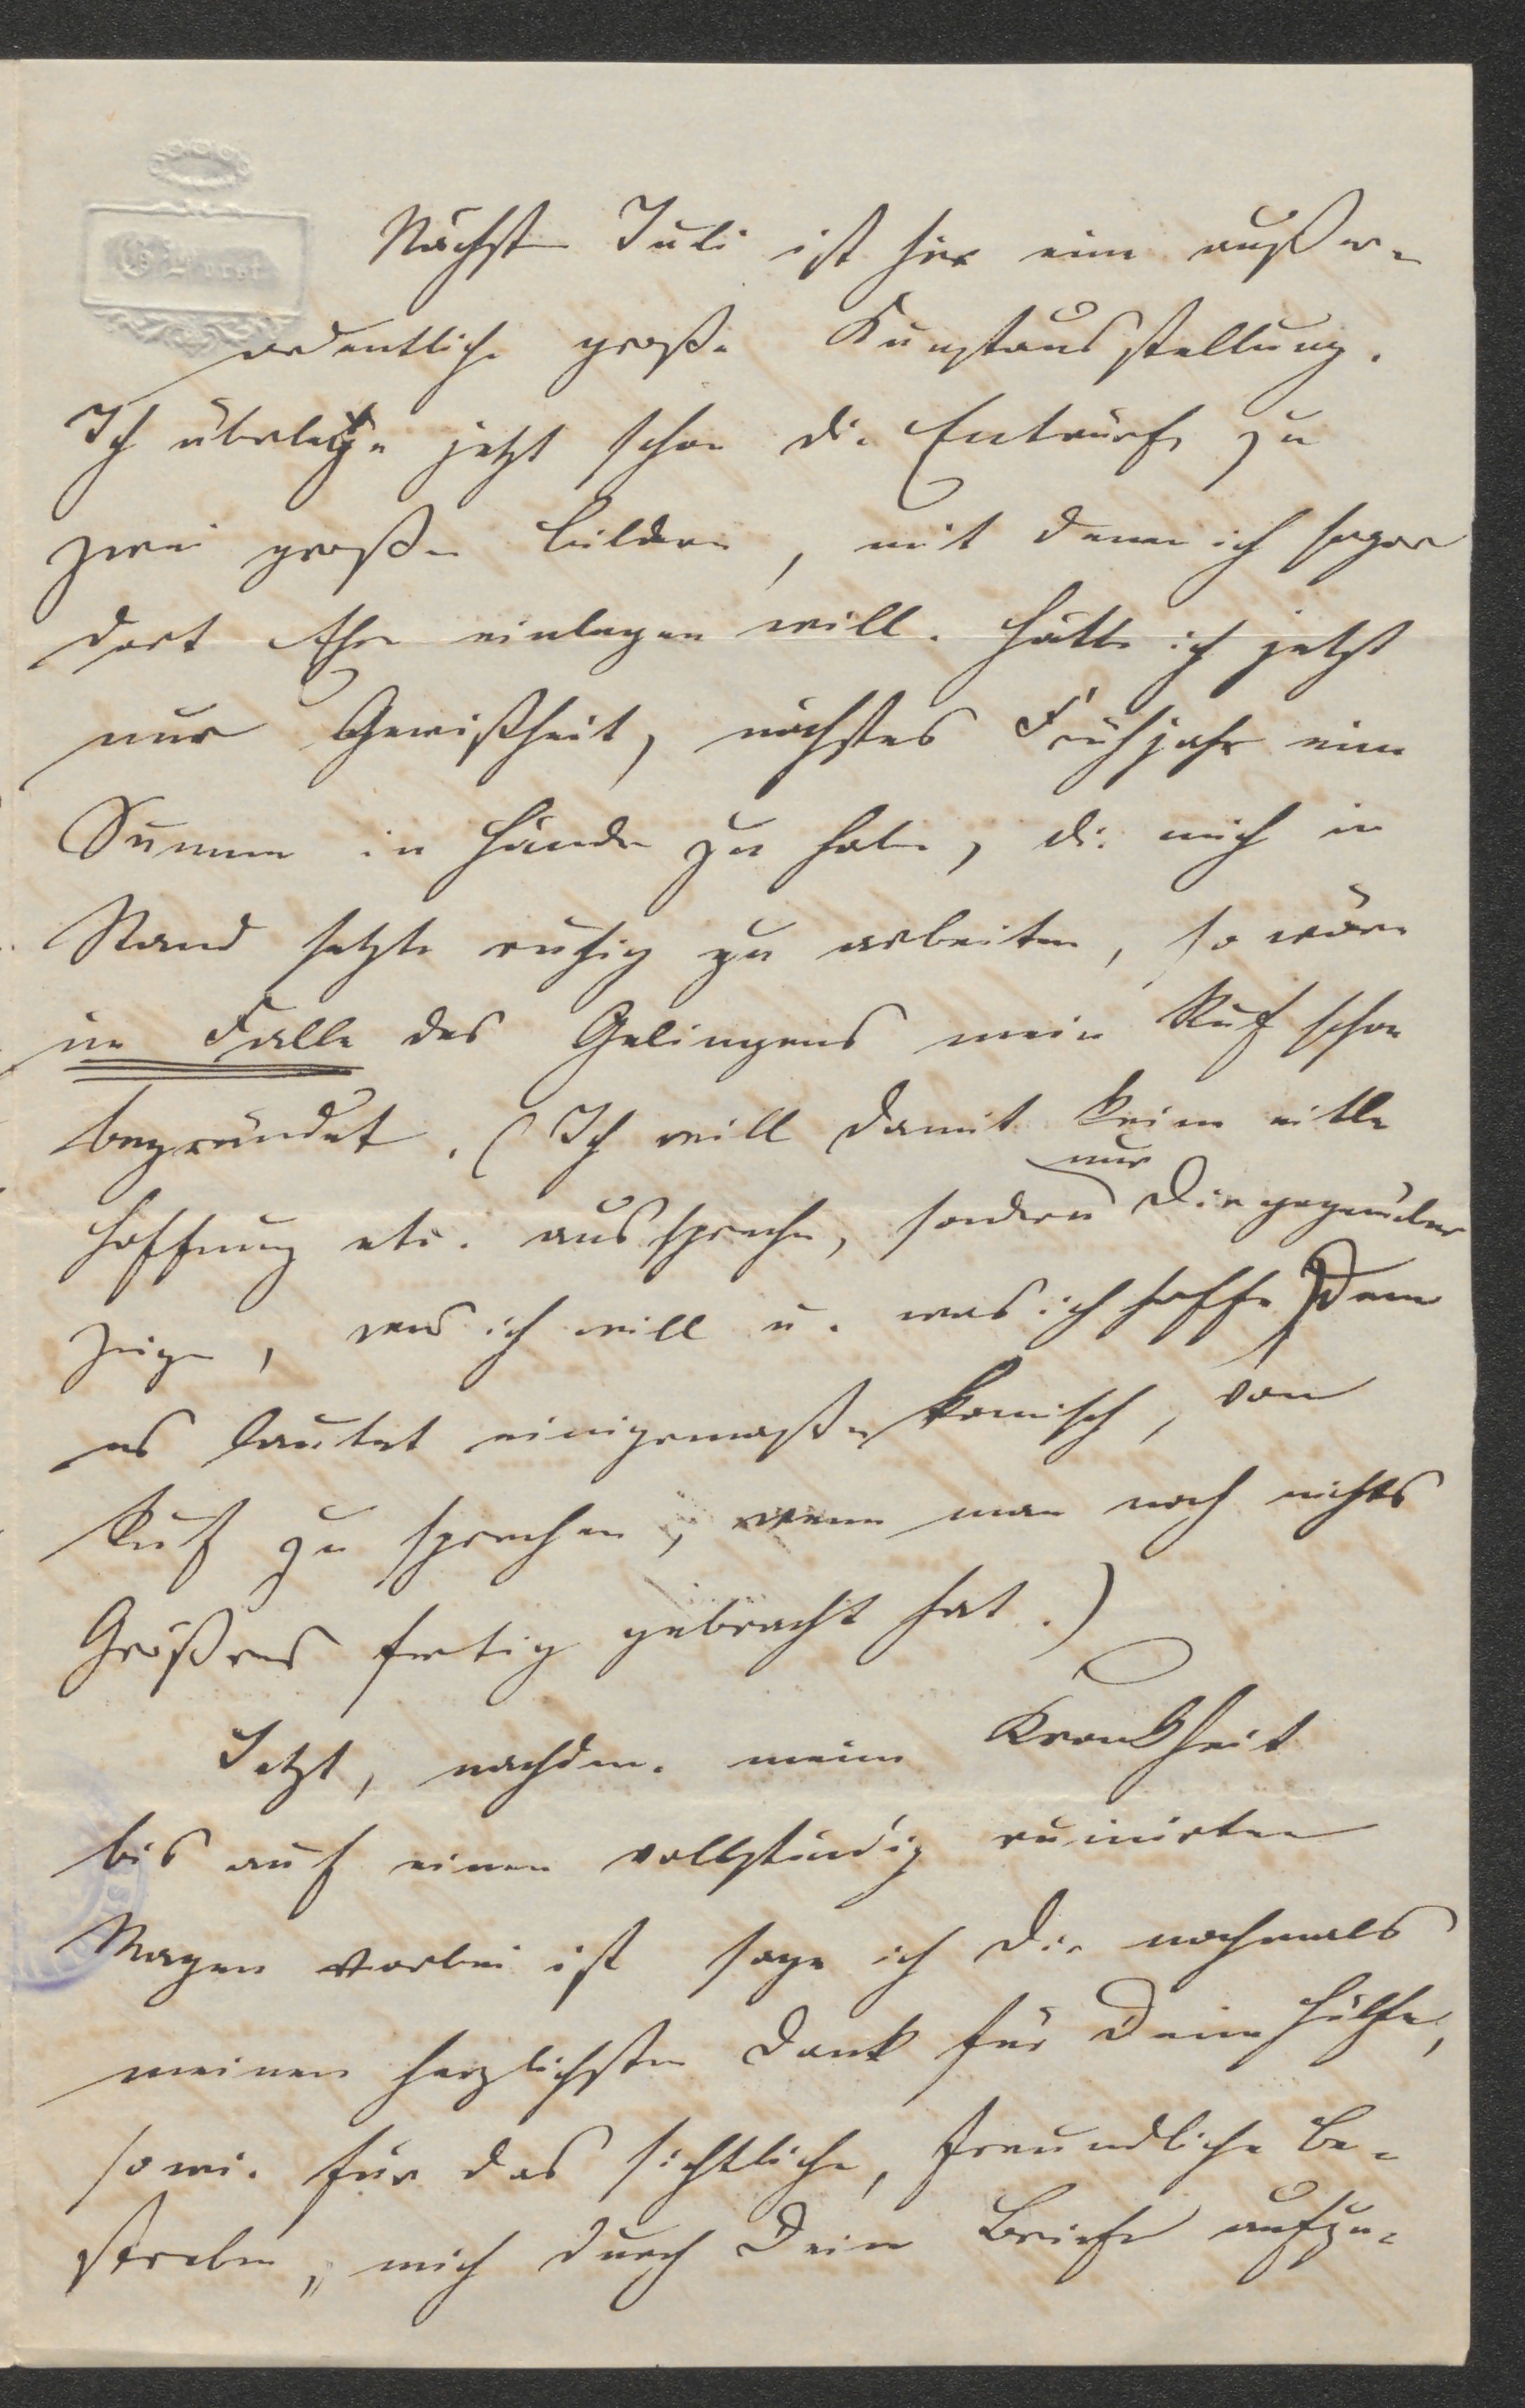 Nächsten Juli ist hier eine außer-
ordentliche große Kunstausstellung.
Ich überlege jetzt schon die Entwürfe zu
zwei großen Bildern, mit denen ich sogar
dort Ehre einlegen will. Hätte ich jetzt
nur Gewißheit, nächstes Frühjahr eine
Summe in Händen zu haben, die mich in
Stand setzte ruhig zu arbeiten, so wäre
im Falle des Gelingens mein Ruf schon
begründet. (Ich will damit keine eitle
nur
Hoffnung etc. aussprechen, sondern Dir gegenüber
zeigen, was ich will u. was ich hoffe) Denn
es lautet einigermaßen komisch, von
Ruf zu sprechen, wenn man noch nichts
Größeres fertig gebracht hat.)
Jetzt, nachdem meine Krankheit
bis auf einen vollständig ruinirten
Magen vorbei ist sage ich Dir nochmals
meinen herzlichsten Dank für Deine Hülfe,
sowie für das sichtliche, freundliche Be-
streben, mich durch Deine Briefe aufzu-